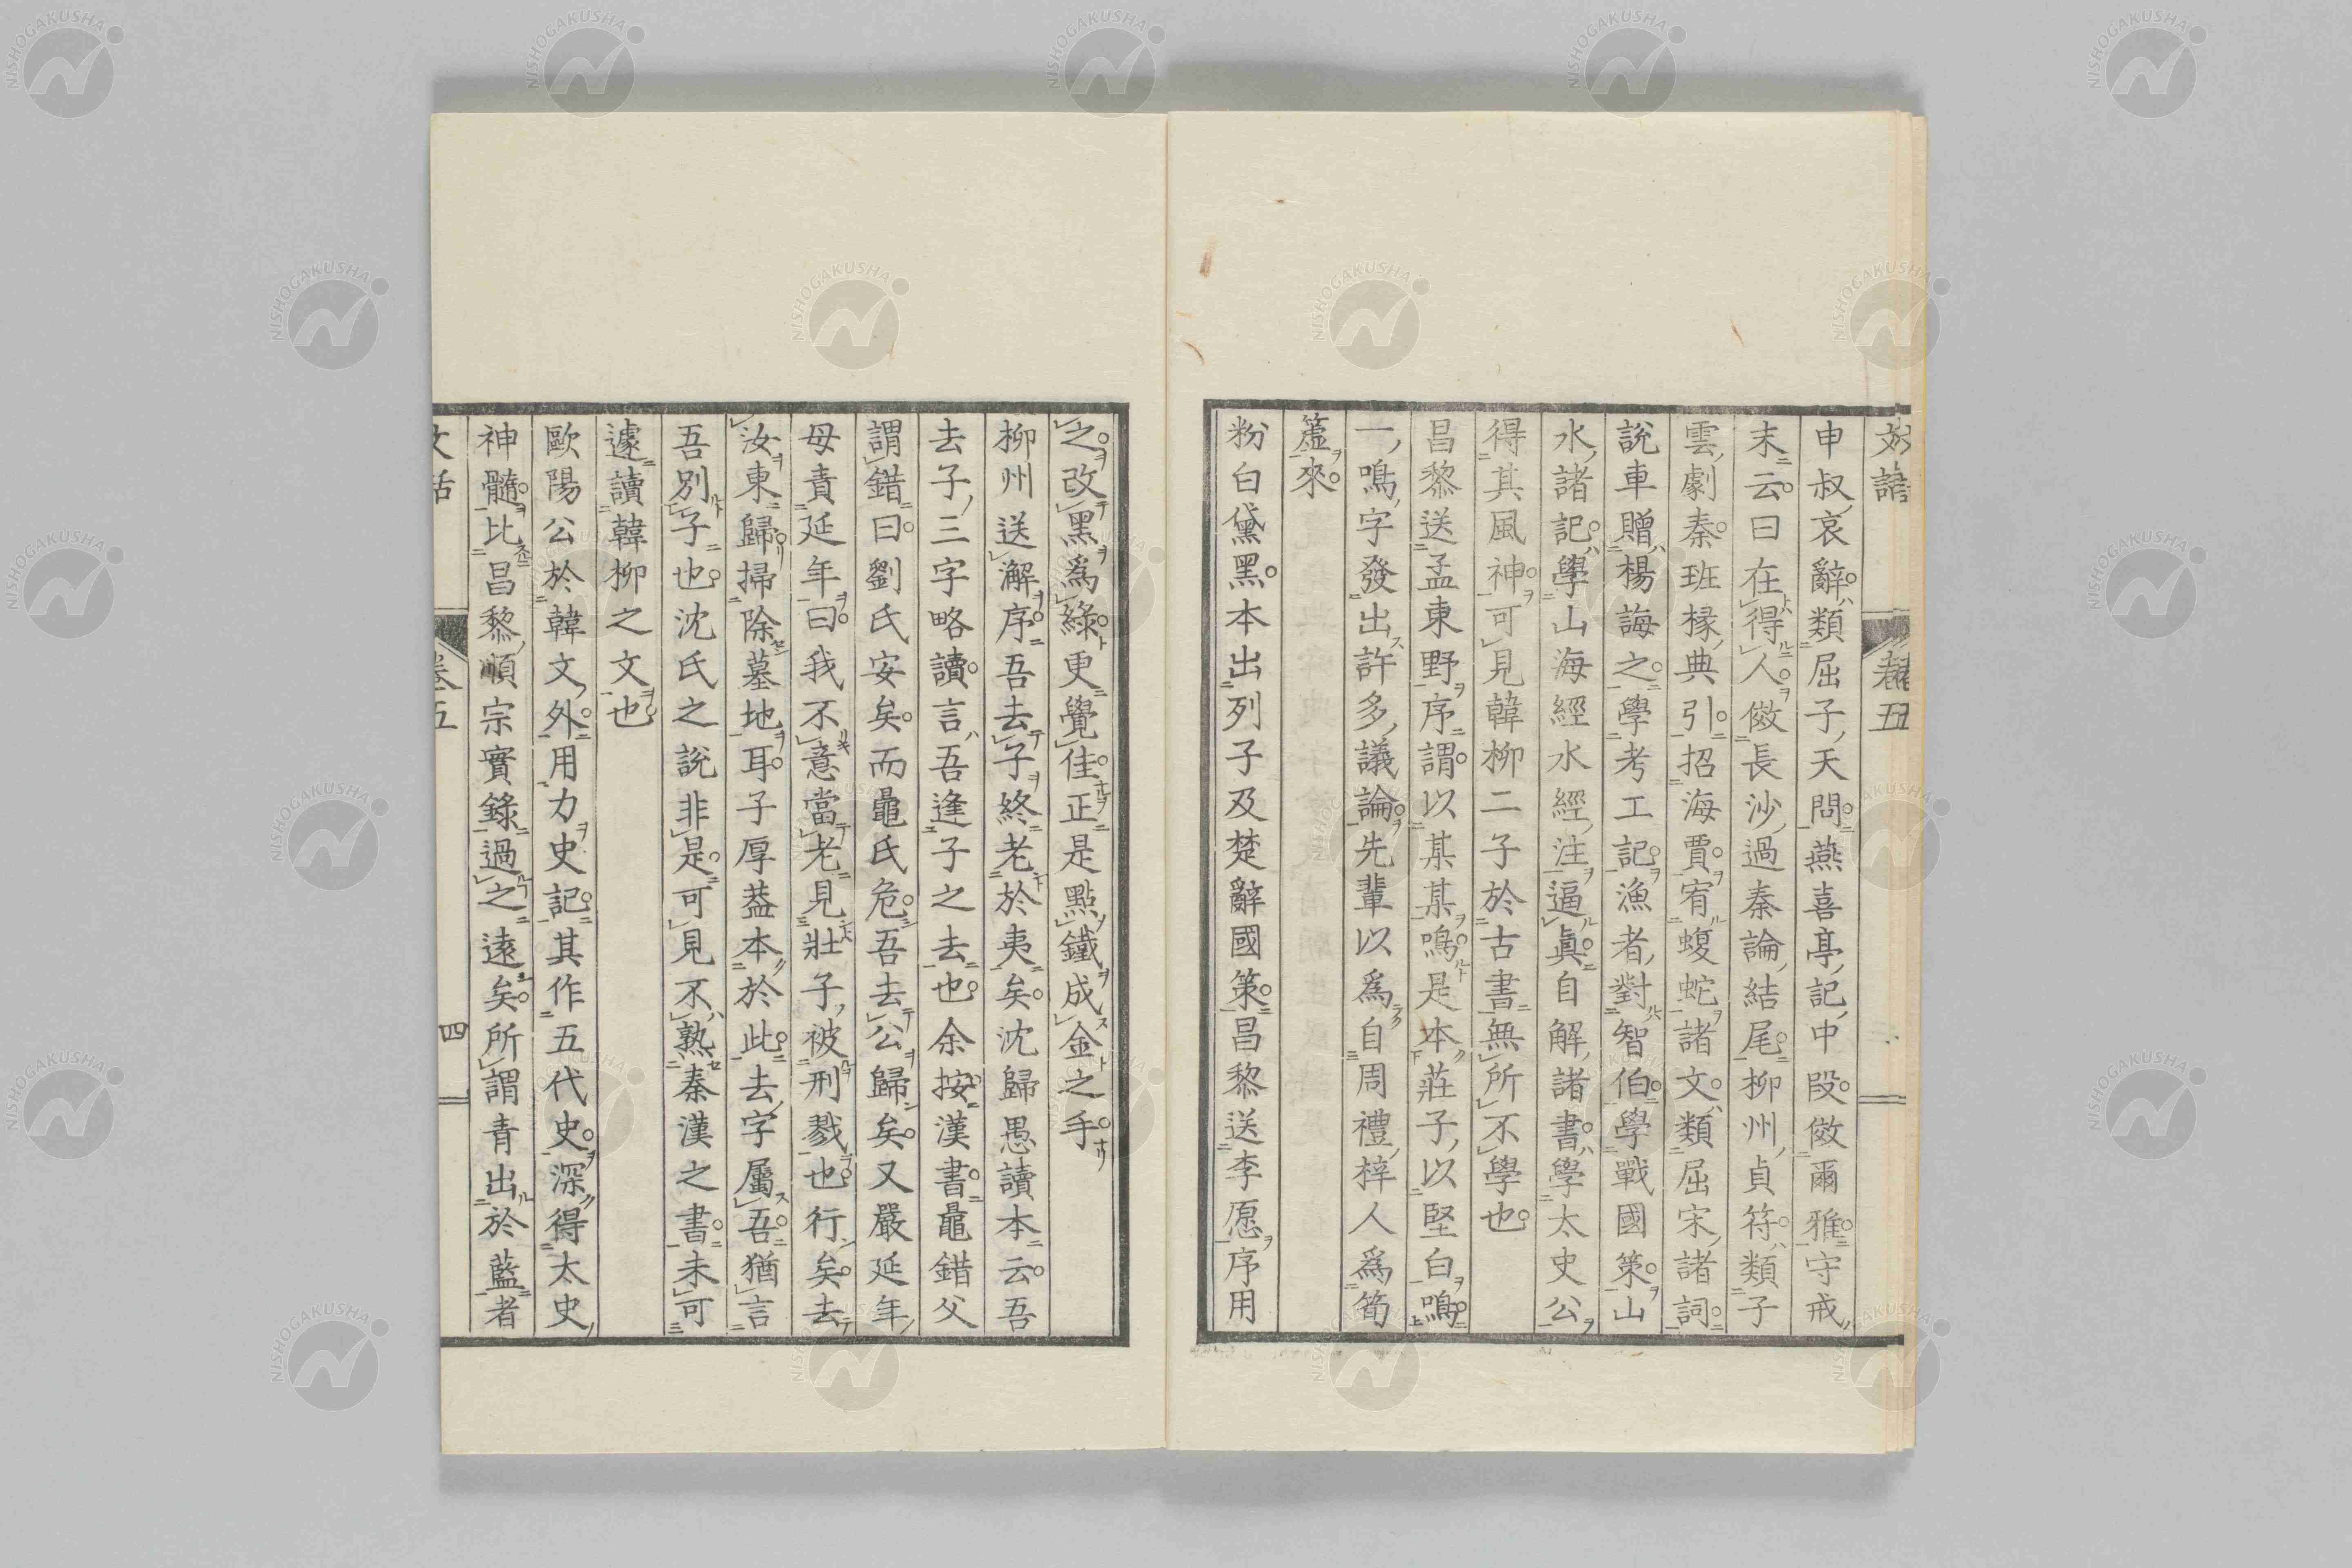 文話
卷五
申叔哀辭類屈子天問燕喜亭記中段倣爾雅守戒
末云曰在得人倣長沙過秦論結尾柳州貞符類子
雲劇秦班椽典引招海賈宥蝮蛇諸文類屈宋諸詞
說車贈楊誨之學考工記漁者對智伯學戰國策山
水諸記學山海經水經注逼眞自解諸書學太史公
得其風神可見韓柳二子於古書無所不學也
昌黎送孟東野序謂以某某鳴是本莊子以堅白鳴
一鳴字發出許多議論先輩以爲自周禮梓人爲筍
簴來
粉白黛黑本出列子及楚辭國策昌黎送李愿序用
之改黑爲綠更覺佳正是點鐵成金之手
柳州送澥序吾去子終老於夷矣沈歸愚讀本云吾
去子三字略讀言吾逢子之去也余按漢書鼂錯父
謂錯曰劉氏安矣而鼂氏危吾去公歸矣又嚴延年
母責延年曰我不意當老見壯子被刑戮也行矣去
汝東歸掃除墓地耳子厚葢本於此去字屬吾猶言
吾別子也沈氏之說非是可見不熟秦漢之書未可
遽讀韓柳之文也
歐陽公於韓文外用力史記其作五代史深得太史
神髓比昌黎順宗實錄過之遠矣所謂青出於藍者
文話
卷五
四
NISHOGAKUSHA